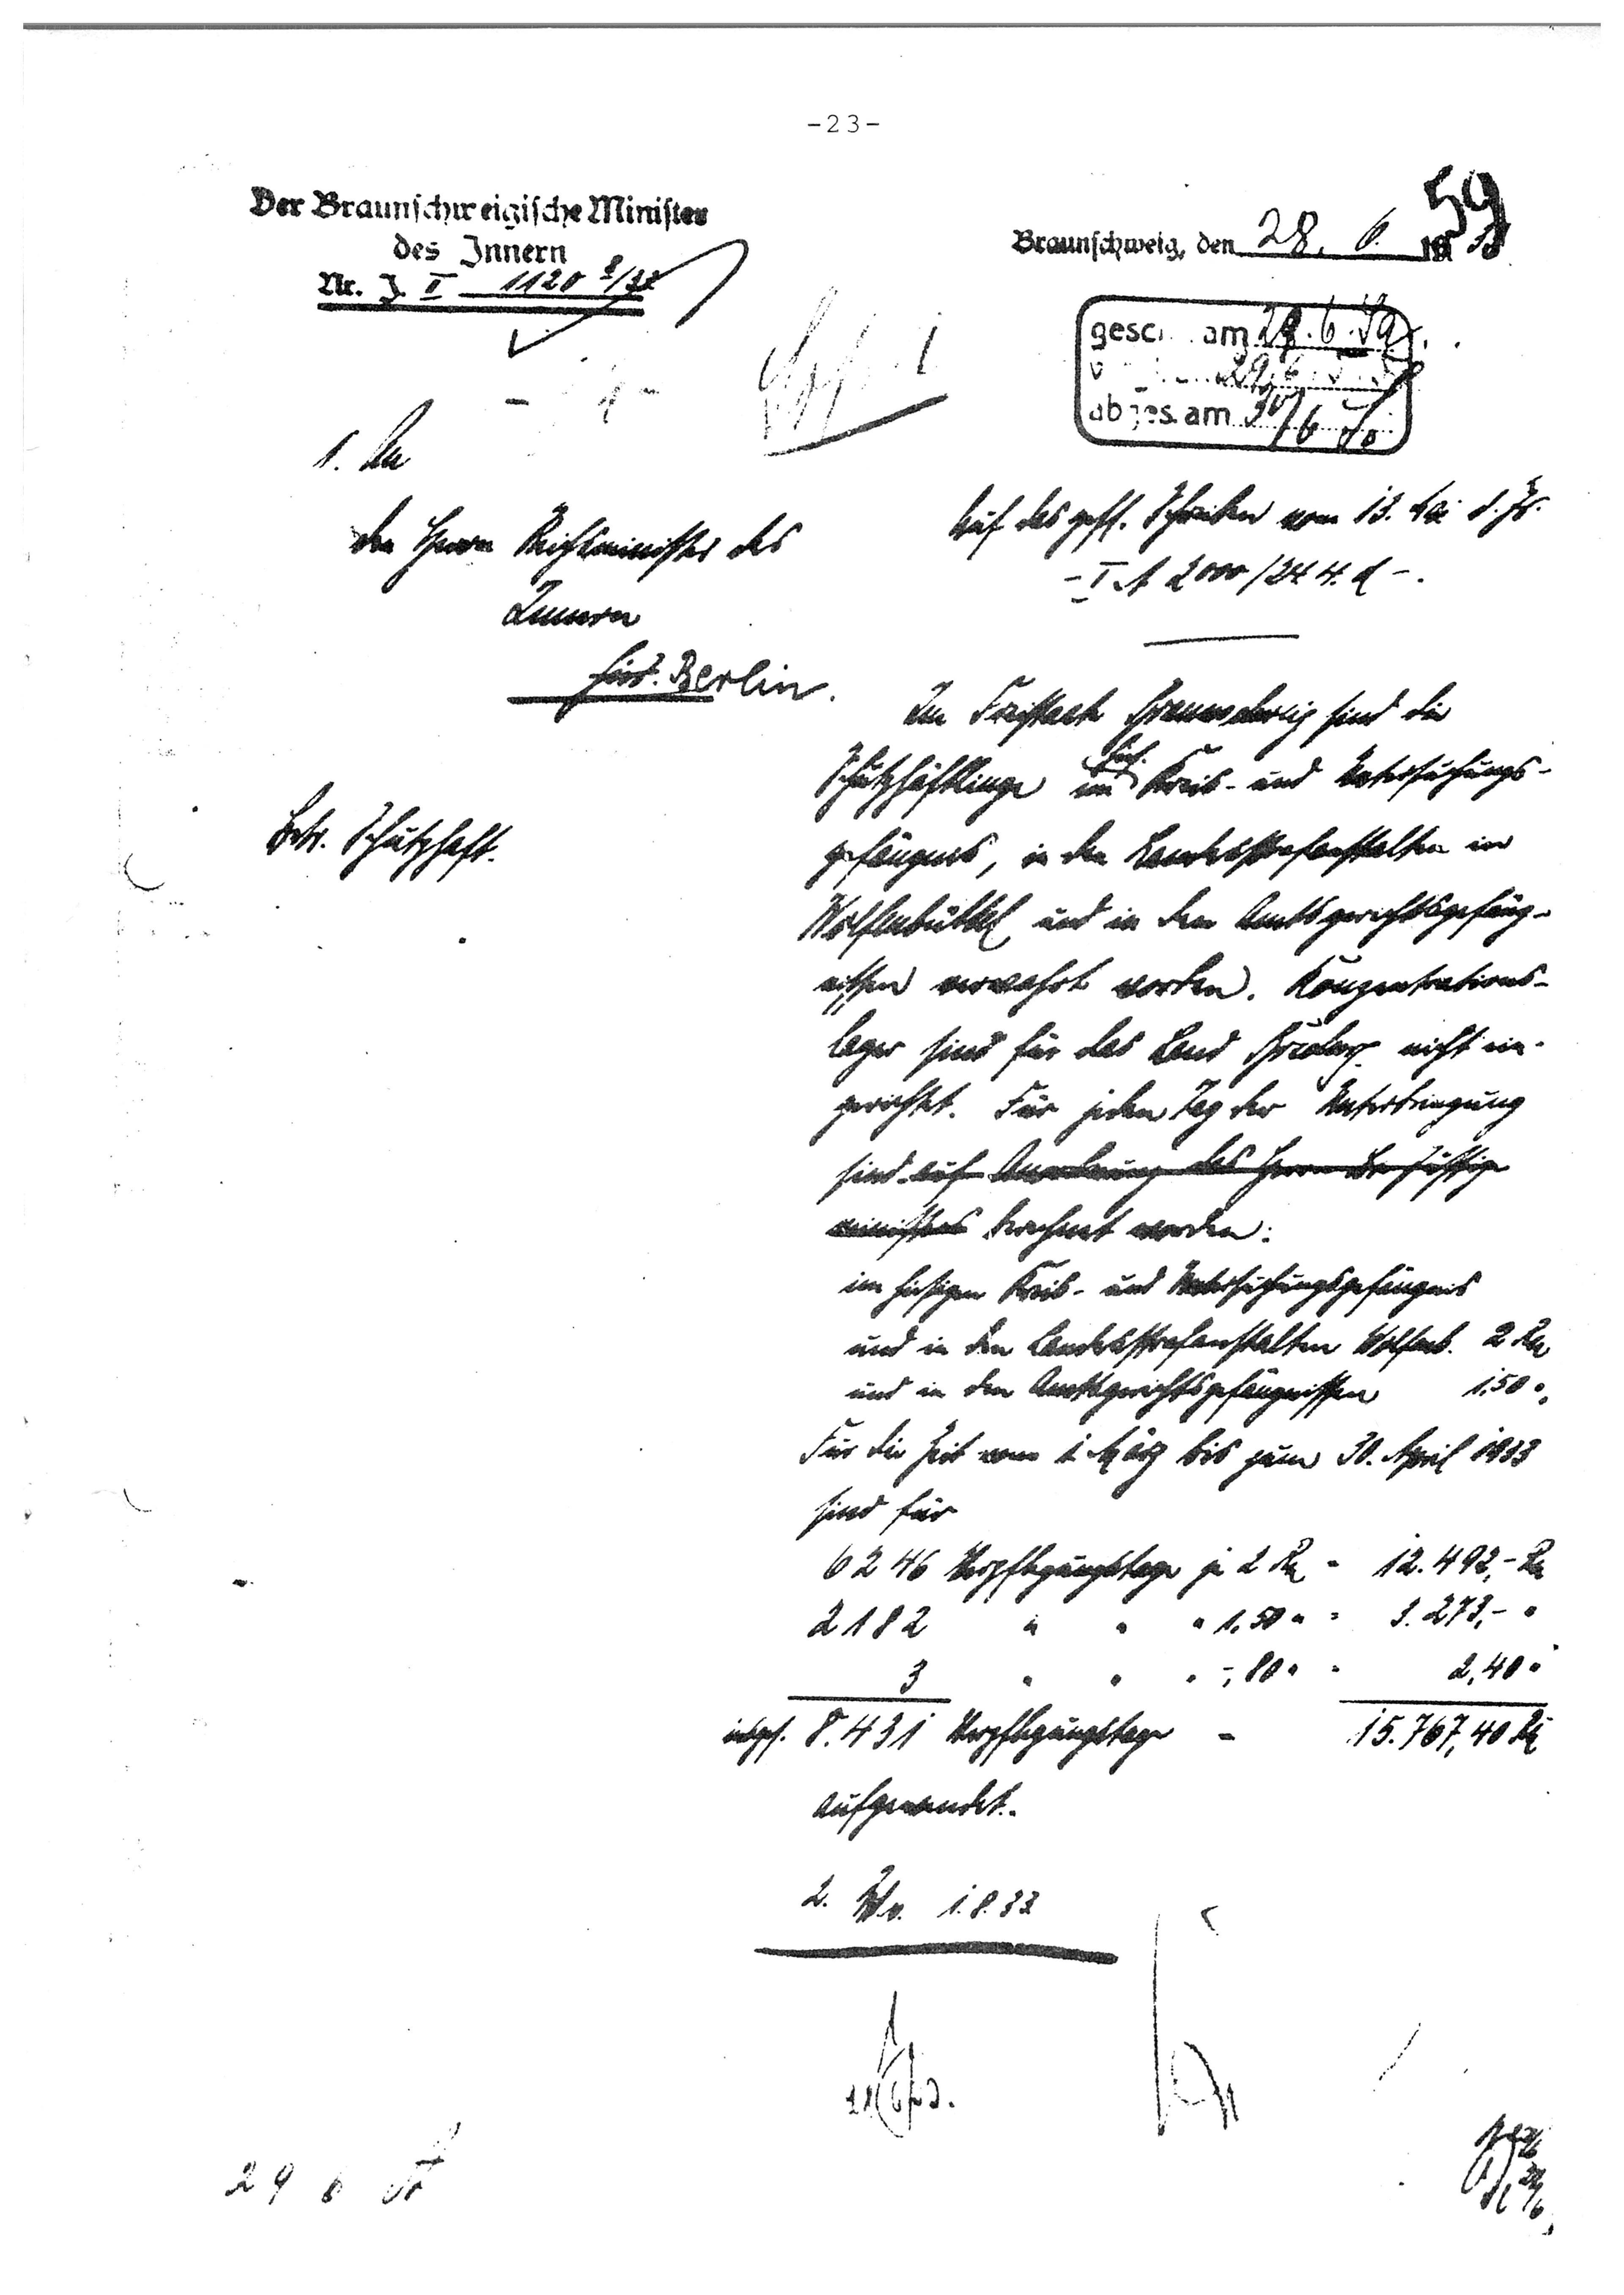 -23-
Der Braunschweigische Minister
des Innern
Nr. J. II 1120 8/33
Braunschweig, den 28. 6. 1933
59
gesch. am 29.6.
abges. am 30/6
1. An
den Herrn Reichsminister des
Innern
hier. Berlin.
Auf das gefl. Schreiben vom 13. Mai d. Js.
- I A 2000/24 4. d -.
Betr. Schutzhaft.
Im Freistaate Braunschweig sind die
Schutzhäftlinge im hies. Kreis- und Untersuchungs-
gefängnis, in den Landesstrafanstalten in
Wolfenbüttel und in den Amtsgerichtsgefäng-
nissen verwahrt worden. Konzentrations-
lager sind für das Land Brschwg. nicht ein-
gerichtet. Für jeden Tag der Unterbringung
sind auf Anordnung des Herrn Justiz-
ministers berechnet worden:
im hiesigen Kreis- und Untersuchungsgefängnis
und in den Landesstrafanstalten Wolfenb. 2 RM
und in den Amtsgerichtsgefängnissen 1,50 "
Für die Zeit vom 1. März bis zum 30. April 1933
sind für
6246 Verpflegungstage je 2 RM = 12.492,- RM
2182 " " " 1,50 " = 3.273,- "
3 " " " -,80 " = 2,40 "
insges. 8.431 Verpflegungstage = 15.767,40 RM
aufgewendet.
2. Wv. 1.8.33
29 6